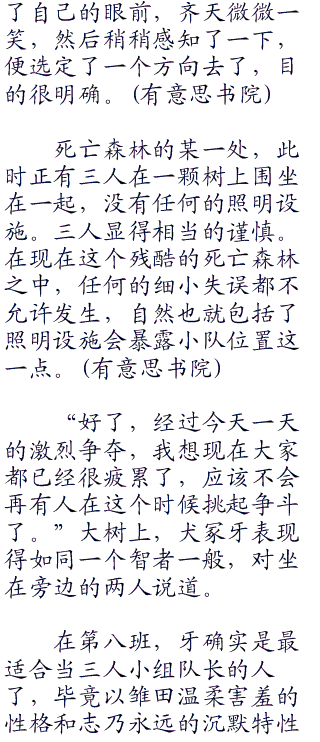 了自己的眼前，齐天微微一
笑，然后稍稍感知了一下，
便选定了一个方向去了，目
的很明确。(有意思书院)
死亡森林的某一处，此
时正有三人在一颗树上围坐
在一起，没有任何的照明设
施。三人显得相当的谨慎。
在现在这个残酷的死亡森林
之中，任何的细小失误都不
允许发生，自然也就包括了
照明设施会暴露小队位置这
一点。(有意思书院)
“好了，经过今天一天
的激烈争夺，我想现在大家
都已经很疲累了，应该不会
再有人在这个时候挑起争斗
了。”大树上，犬冢牙表现
得如同一个智者一般，对坐
在旁边的两人说道。
在第八班，牙确实是最
适合当三人小组队长的人
了，毕竟以雏田温柔害羞的
性格和志乃永远的沉默特性